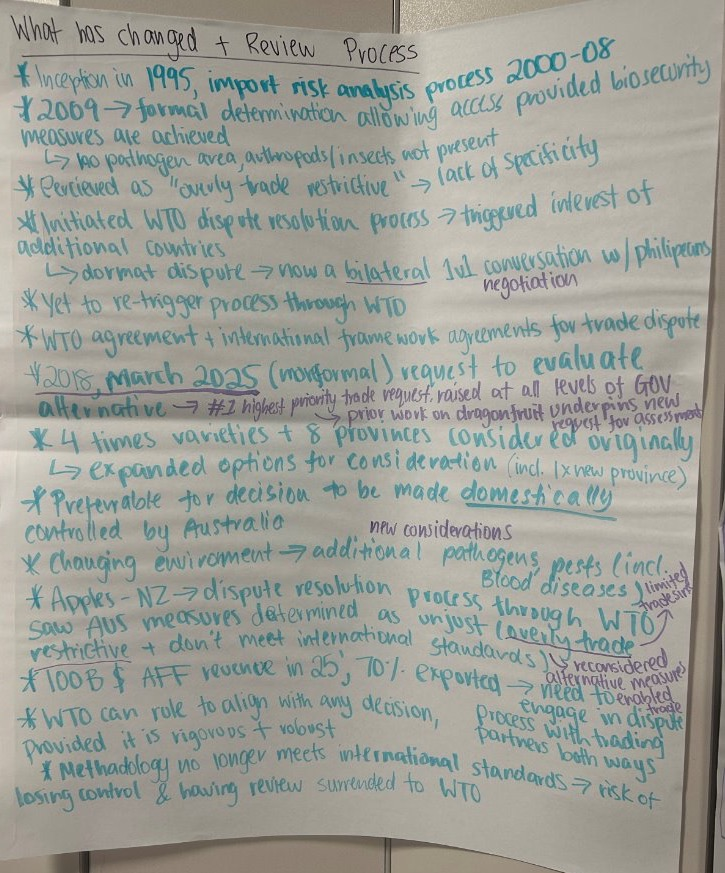 What has changed + Review Process
* Inception in 1995, import risk analysis process 2000-08
* 2009 → formal determination allowing access provided biosecurity
measures are achieved
↳ no pathogen area, anthropods/insects not present
* Percieved as "overly trade restrictive" → lack of specificity
* Initiated WTO dispute resolution process → triggered interest of
additional countries
↳ dormat dispute → now a bilateral 1v1 conversation w/ philipeans
negotiation
* Yet to re-trigger process through WTO
* WTO agreement + international framework agreements for trade dispute
* 2018, March 2025 (nonformal) request to evaluate
alternative → #1 highest priority trade request, raised at all levels of GOV
↳ prior work on dragonfruit underpins new
request for assessment
* 4 times varieties + 8 provinces considered originally
↳ expanded options for consideration (incl. 1x new province)
* Preferrable for decision to be made domestically
controlled by Australia
new considerations
* Changing enviroment → additional pathogens, pests (incl.
Blood diseases)
* Apples - NZ → dispute resolution process through WTO
limited
saw AUS measures determined as unjust (overly trade
restrictive + don't meet international standards)
↳ reconsidered
alternative measures
enabled
trade
* 100B $ AFF revenue in 25', 70% exported → need to
engage in dispute
process with trading
partners both ways
* WTO can role to align with any decision,
provided it is rigorous + robust
* Methodology no longer meets international standards → risk of
losing control & having review surrended to WTO